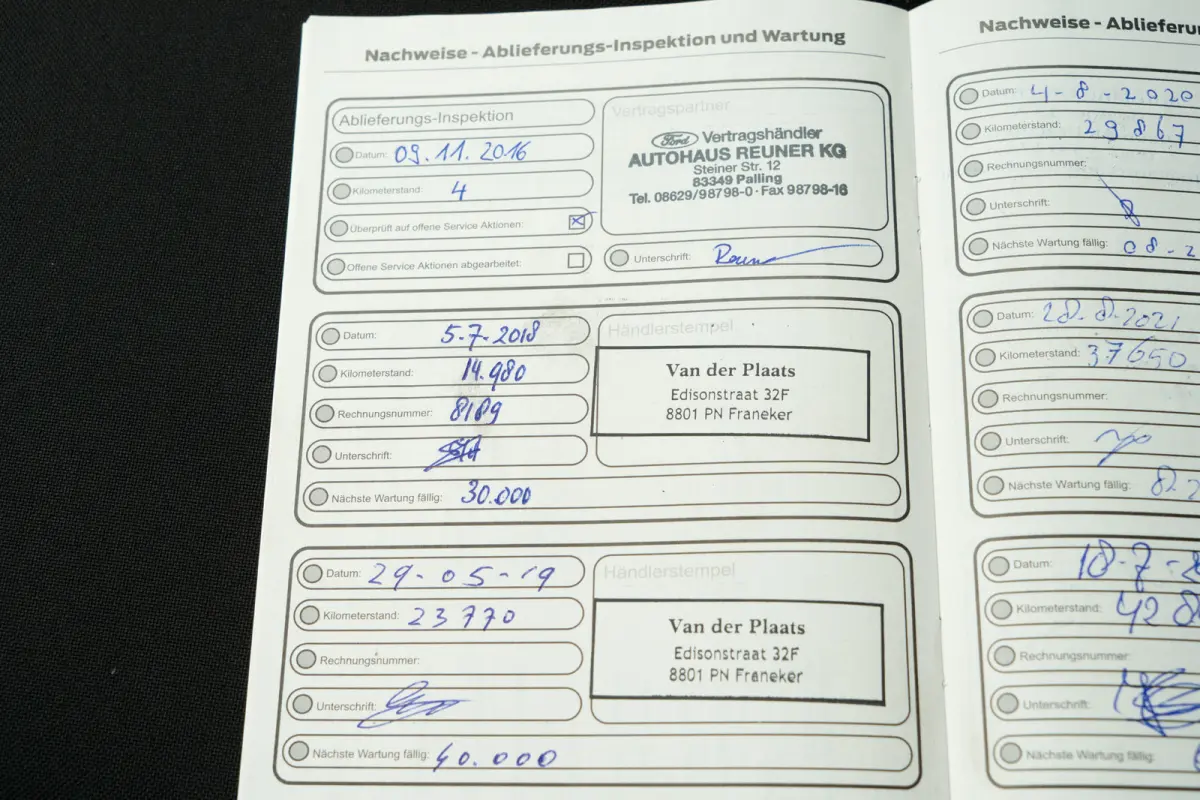 Nachweise - Ablieferungs-Inspektion und Wartung
Ablieferungs-Inspektion
Datum: 09.11.2016
Kilometerstand: 4
Überprüft auf offene Service Aktionen:
Offene Service Aktionen abgearbeitet:
Vertragspartner
Ford Vertragshändler
AUTOHAUS REUNER KG
Steiner Str. 12
83349 Palling
Tel. 08629/98798-0 · Fax 98798-16
Unterschrift:
Datum: 5-7-2018
Kilometerstand: 14.980
Rechnungsnummer: 8189
Unterschrift:
Nächste Wartung fällig: 30.000
Händlerstempel
Van der Plaats
Edisonstraat 32F
8801 PN Franeker
Datum: 29-05-19
Kilometerstand: 23770
Rechnungsnummer:
Unterschrift:
Nächste Wartung fällig: 40.000
Händlerstempel
Van der Plaats
Edisonstraat 32F
8801 PN Franeker
Nachweise - Ablieferu
Datum: 4-8-2020
Kilometerstand: 29867
Rechnungsnummer:
Unterschrift:
Nächste Wartung fällig: 08-2
Datum: 28.8.2021
Kilometerstand: 37650
Rechnungsnummer:
Unterschrift:
Nächste Wartung fällig:
Datum: 18-7-2
Kilometerstand: 428
Rechnungsnummer:
Unterschrift:
Nächste Wartung fällig: